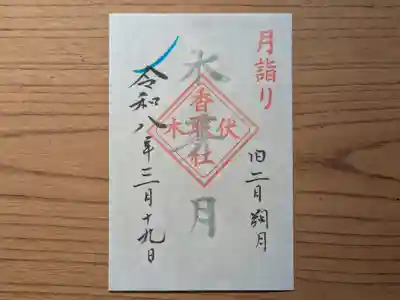 月詣り
旧二月朔月
木
月
伏木
香取社
令和八年三月十九日